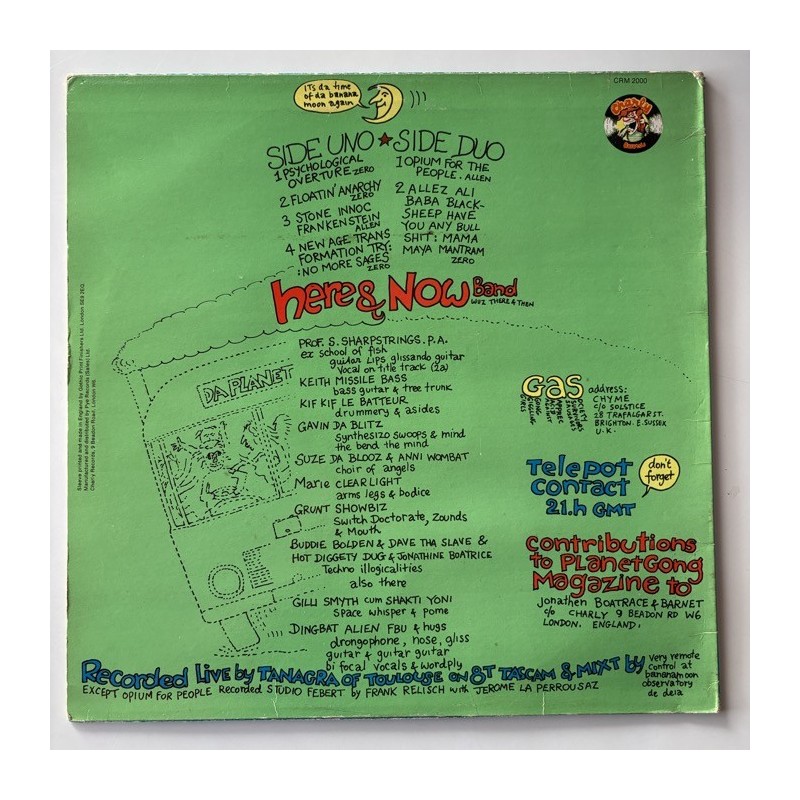 ITS da time
of da banana
moon again
CRM 2000
Charly
Records
SIDE UNO ★ SIDE DUO
1 PSYCHOLOGICAL
OVERTURE ZERO
2 FLOATIN' ANARCHY
ZERO
3 STONE INNOC
FRANKENSTEIN
ALLEN
4 NEW AGE TRANS
FORMATION TRY:
:NO MORE SAGES
ZERO
1 OPIUM FOR THE
PEOPLE. ALLEN
2 ALLEZ ALI
BABA BLACK-
SHEEP HAVE
YOU ANY BULL
SHIT: MAMA
MAYA MANTRAM
ZERO
here & NOW Band
WUZ THERE & THEN
PROF. S. SHARPSTRINGS. P.A.
ex school of fish
guitar Lips glissando guitar
Vocal on title track (2a)
KEITH MISSILE BASS
bass guitar & tree trunk
KIF KIF LE BATTEUR
drummery & asides
GAVIN DA BLITZ
Synthesizo swoops & mind
the bend the mind
SUZE DA BLOOZ & ANNI WOMBAT
choir of angels
Marie CLEARLIGHT
arms legs & bodice
GRUNT SHOWBIZ
Switch Doctorate, Zounds
& Mouth
BUDDIE BOLDEN & DAVE THA SLAVE &
HOT DIGGETY DUG & JONATHINE BOATRICE
Techno illogicalities
also there
GILLI SMYTH cum SHAKTI YONI
Space whisper & pome
DINGBAT ALIEN FBU & hugs
drongophone, nose, gliss
guitar & guitar guitar
bi focal vocals & wordply
DA PLANET
Gas address:
CHYME
c/o SOLSTICE
28 TRAFALGAR ST.
BRIGHTON. E. SUSSEX
U.K.
Telepot
contact
21.h GMT
don't
forget
contributions
to PLANetGong
Magazine to
Jonathen BOATRACE & BARNET
c/o CHARLY 9 BEADON RD W6
LONDON. ENGLAND.
Recorded Live by TANAGRA OF TOULOUSE ON 8T TASCAM & MIXT by
very remote
control at
bananamoon
observatory
de deia
EXCEPT OPIUM FOR PEOPLE Recorded STUDIO FEBERT by FRANK RELISCH with JEROME LA PERROUSAZ
Sleeve printed and made in England by Gothic Print Finishers Ltd. London SE8 2EG.
Manufactured and distributed by Pye Records (Sales) Ltd.
Charly Records, 9 Beadon Road, London W6.